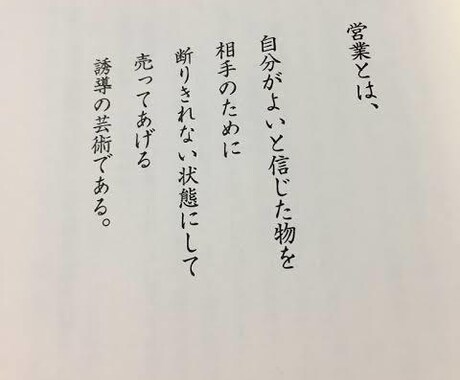 営業とは、
自分がよいと信じた物を
相手のために
断りきれない状態にして
売ってあげる
誘導の芸術である。